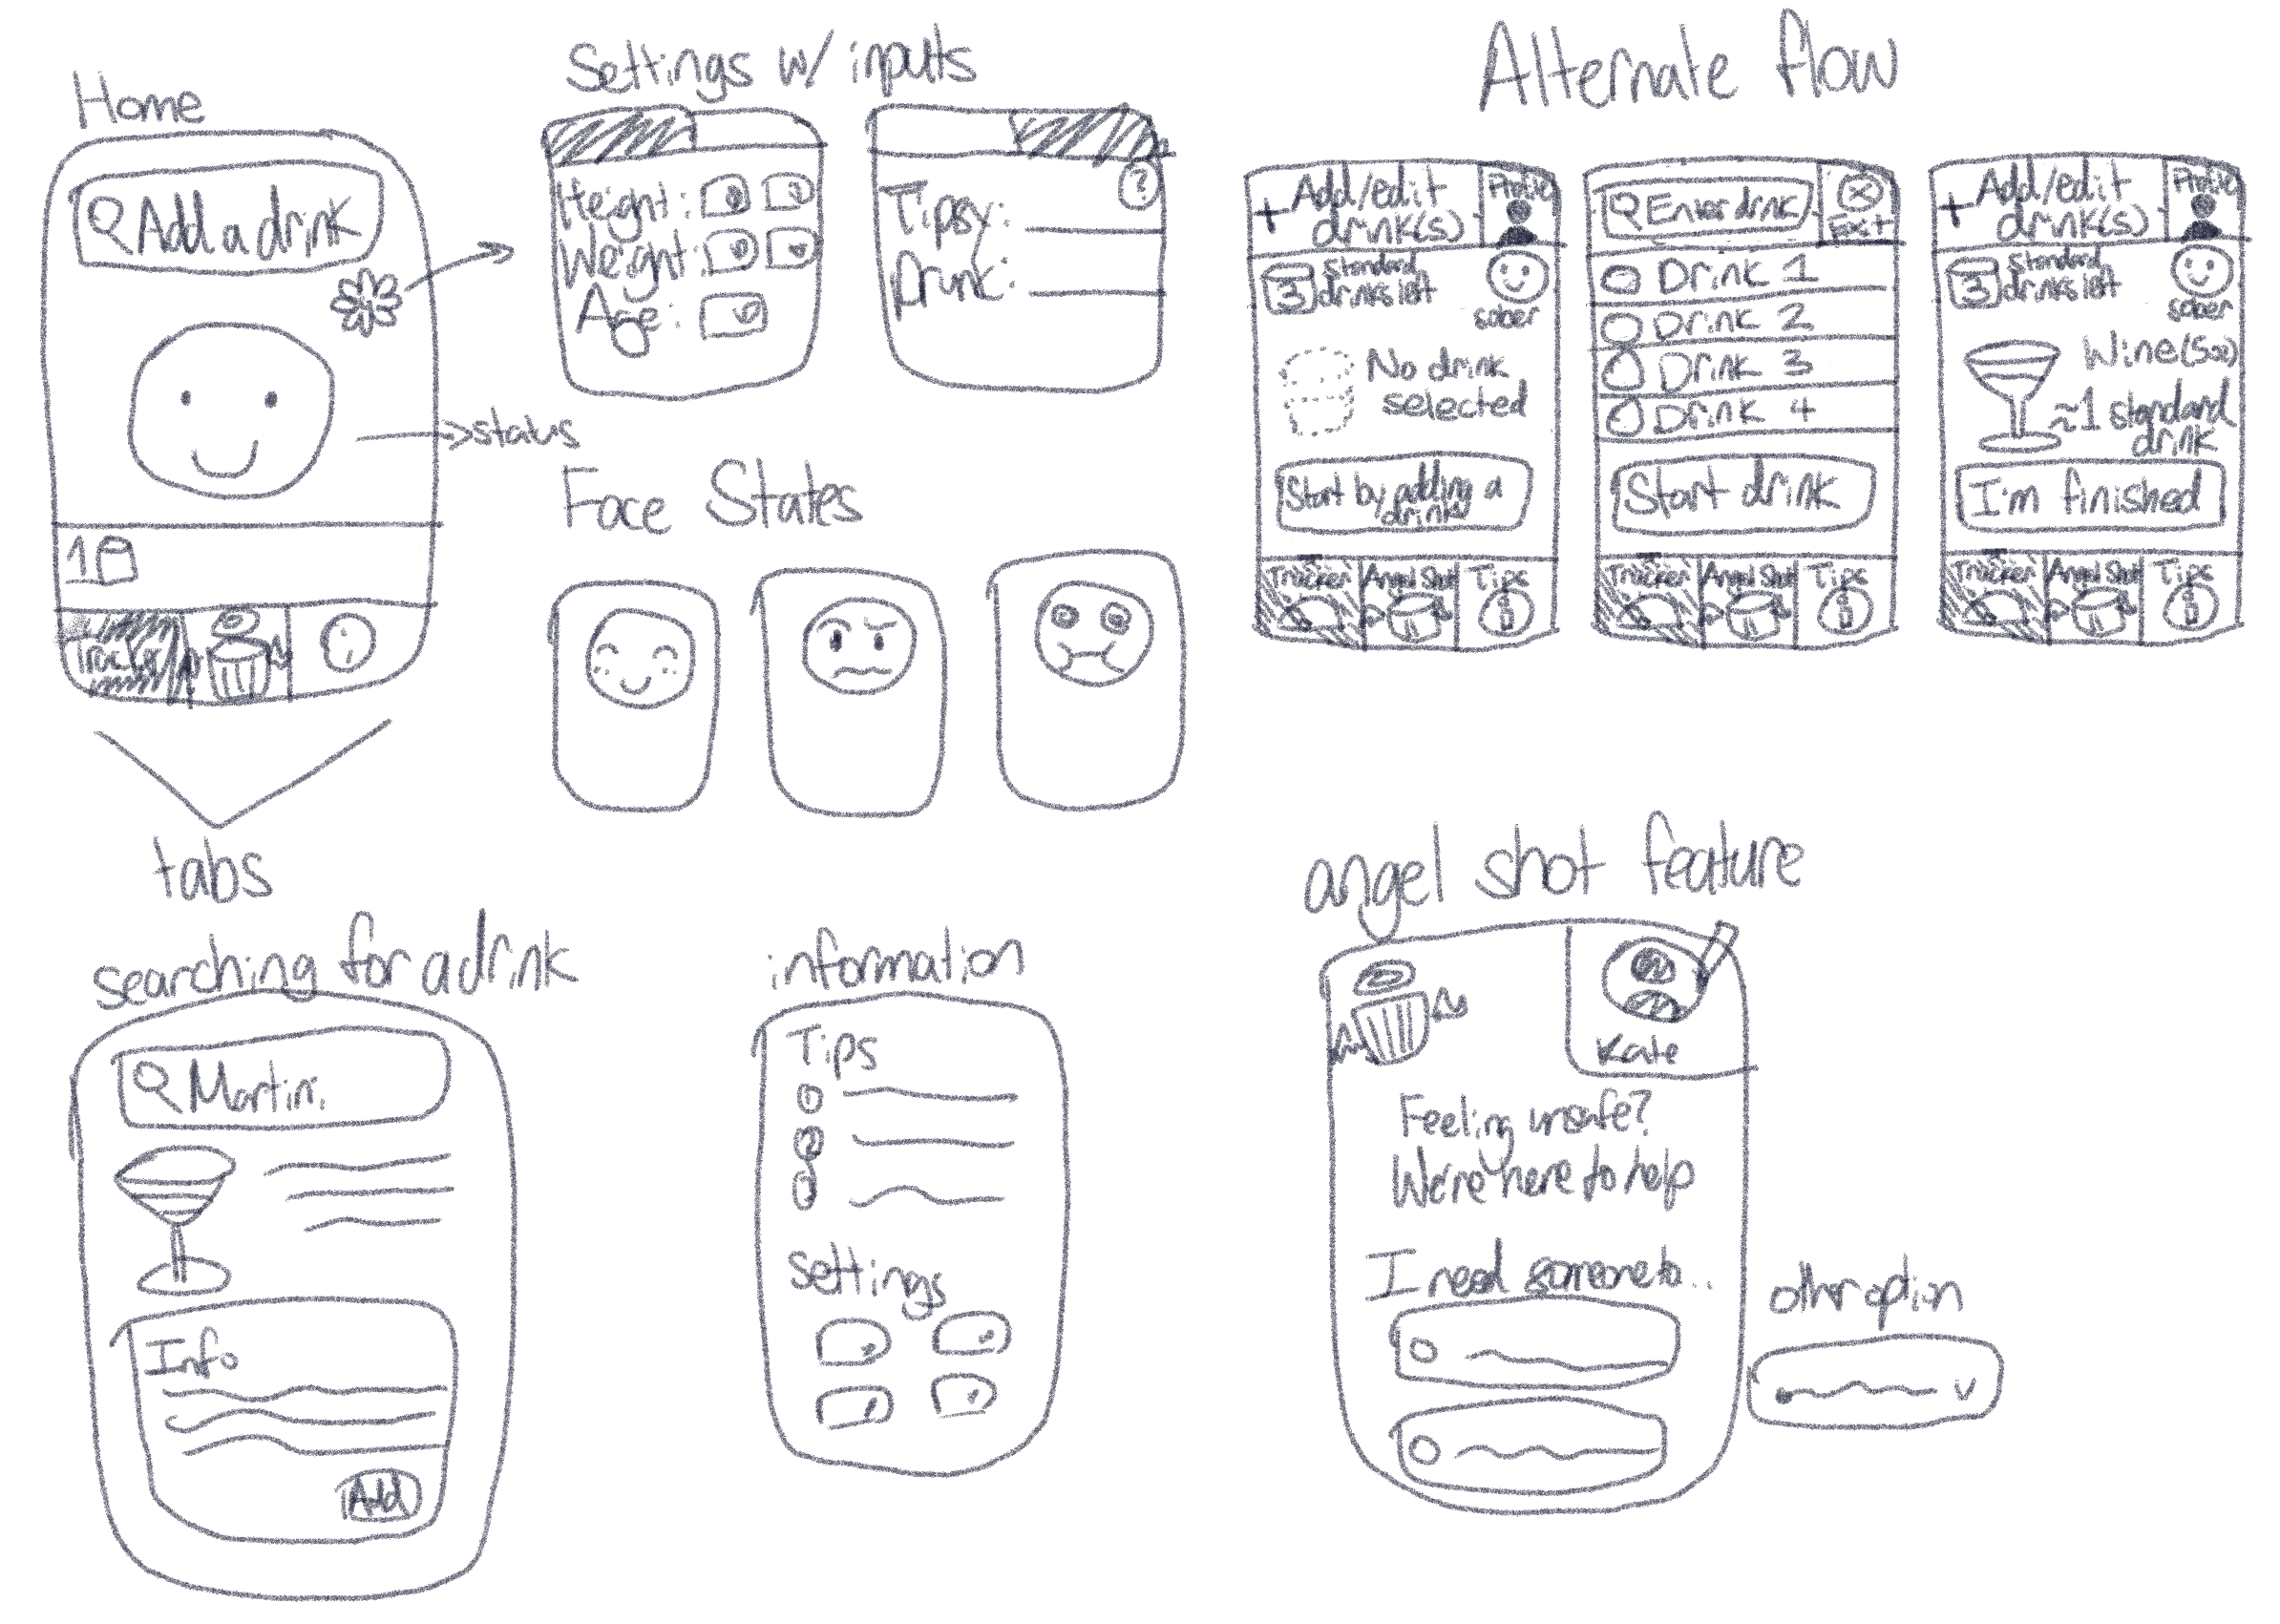 Home
Add a drink
status
1
Tracker
tabs
Settings w/ inputs
Height:
Weight:
Age:
?
Tipsy:
Drunk:
Face States
Alternate flow
+ Add/edit
drink(s)
Profile
3 standard
drinks left
sober
No drink
selected
Start by adding a
drink
Tracker Angel Shot Tips
Enter drink
Exit
Drink 1
Drink 2
Drink 3
Drink 4
Start drink
Tracker Angel Shot Tips
+ Add/edit
drink(s)
Profile
3 standard
drinks left
sober
≈1 standard
drink
I'm finished
Tracker Angel Shot Tips
searching for a drink
Martini
Info
Add
information
Tips
Settings
angel shot feature
Kate
Feeling unsafe?
We're here to help
I need someone to...
other option